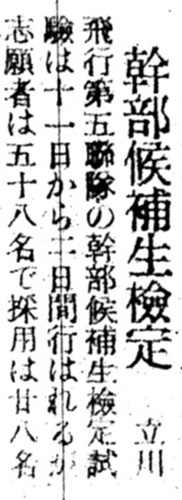 幹部候補生檢定
立川
飛行第五聯隊の幹部候補生檢定試
驗は十一日から二日間行はれるが
志願者は五十八名で採用は廿八名